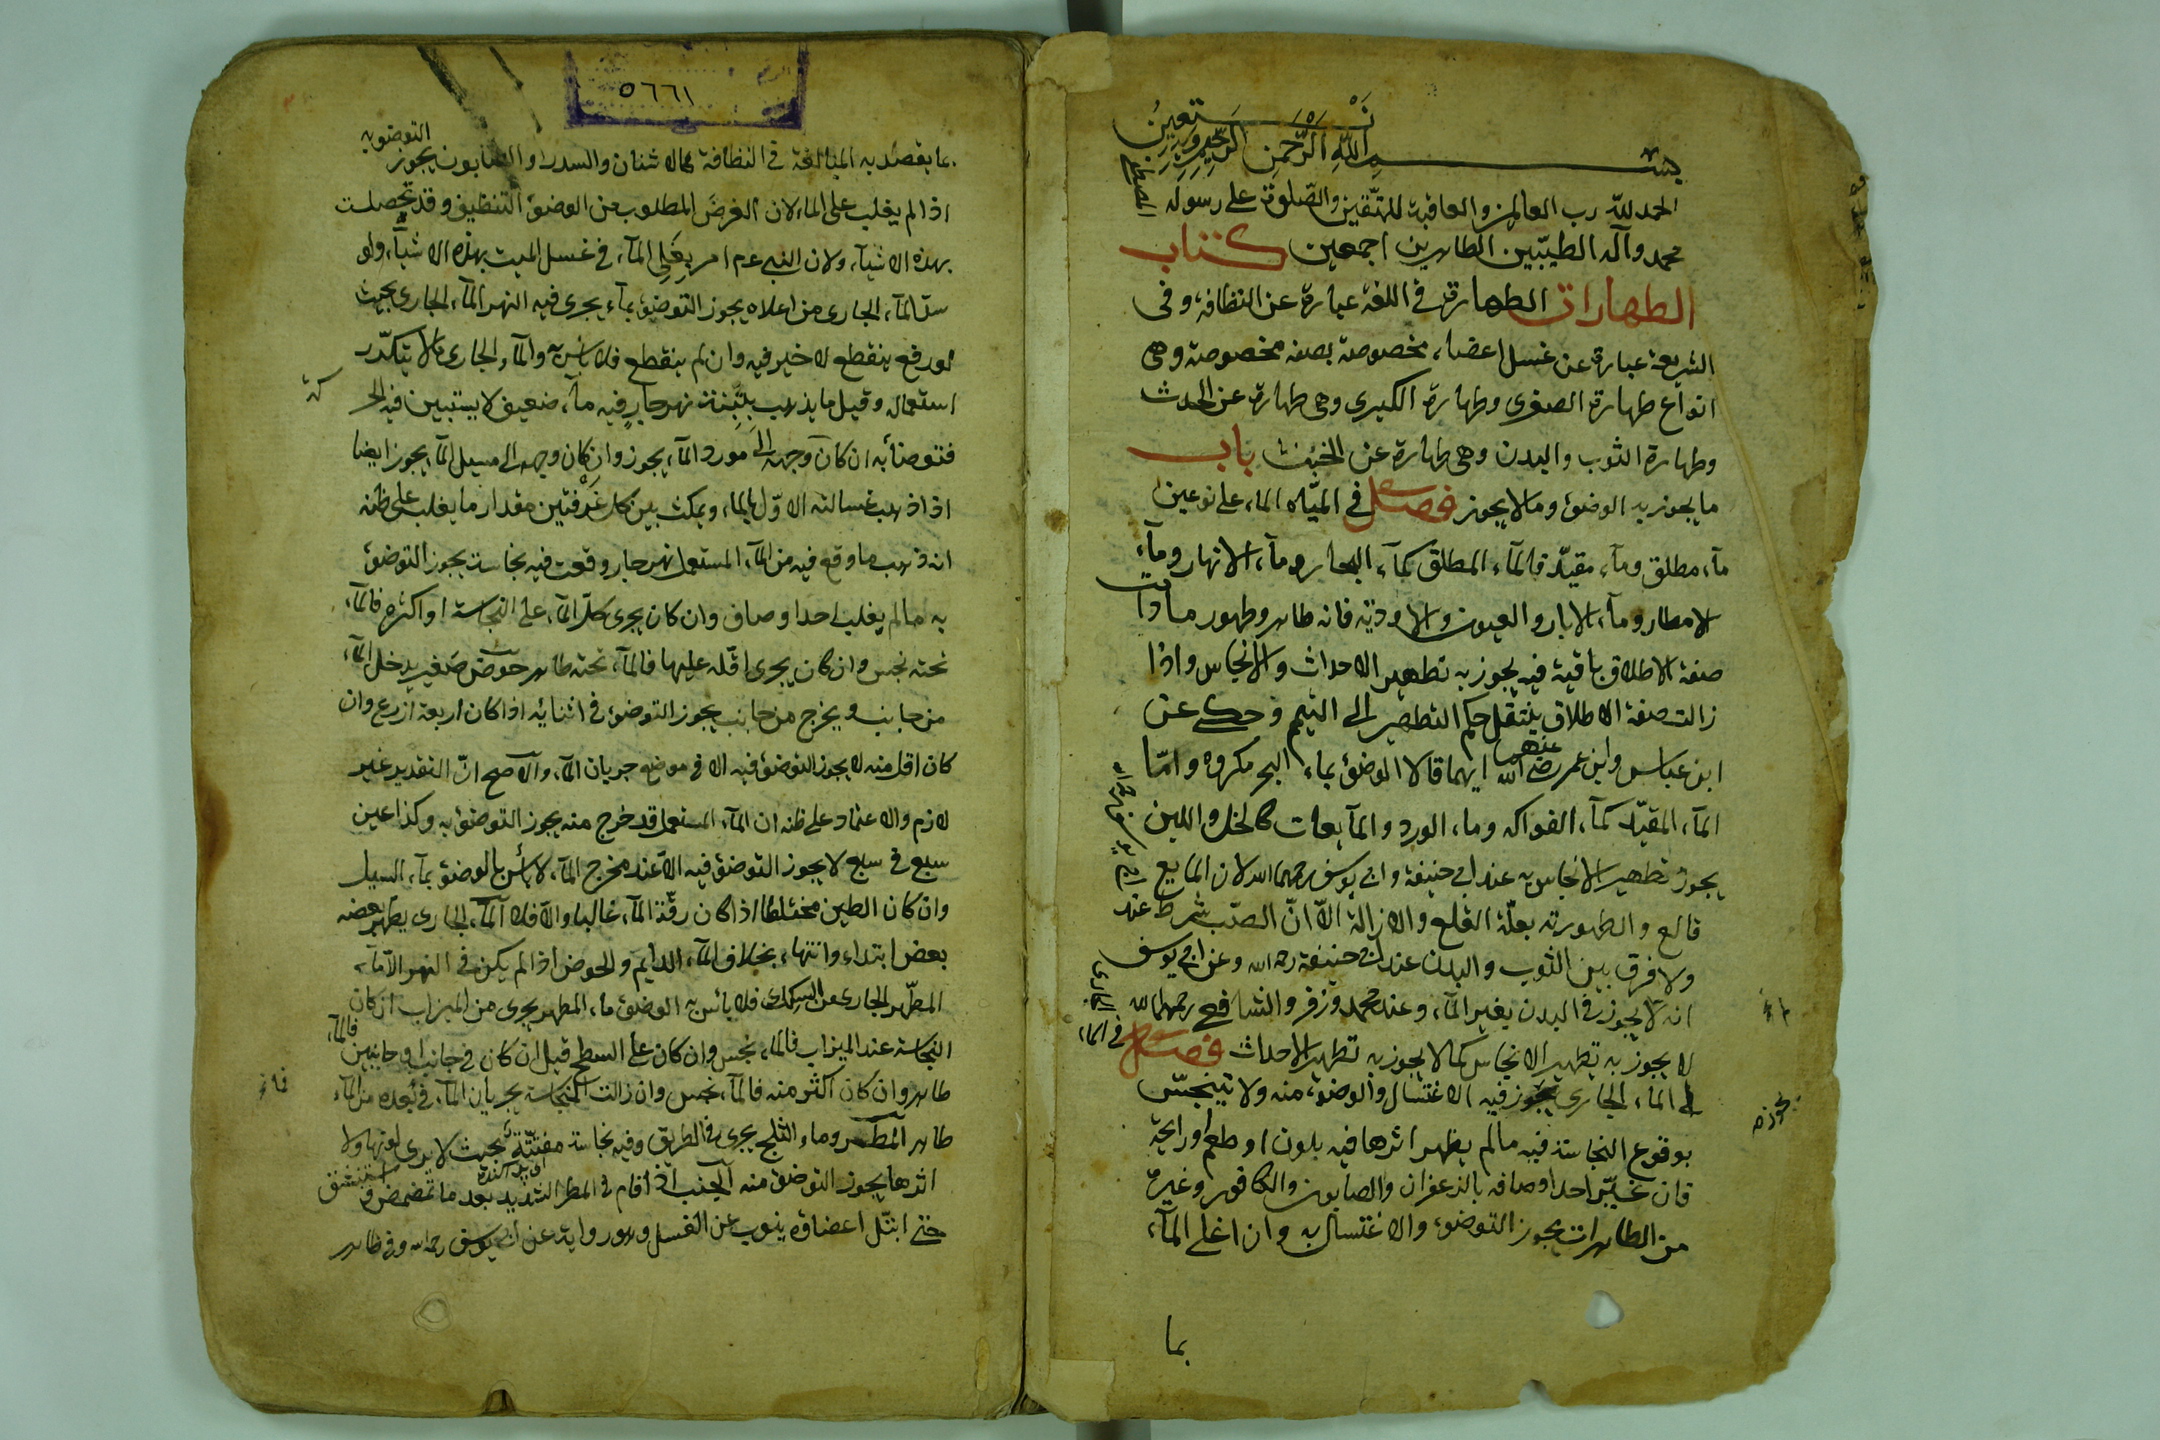 بسم الله الرحمن الرحيم وبه نستعين
الحمد لله رب العالمين والعاقبة للمتقين والصلوة على رسوله المصطفى
محمد وآله الطيبين الطاهرين اجمعين كتاب
الطهارات الطهارة في اللغة عبارة عن النظافة وفى
الشريعة عبارة عن غسل اعضاء مخصوصة بصفة مخصوصة وهى
انواع طهارة الصغرى وطهارة الكبرى وهى طهارة عن الحدث
وطهارة الثوب والبدن وهى طهارة عن الخبث باب
ما يجوز به الوضوء وما لا يجوز فصل في المياه الماء على نوعين
مآء مطلق ومآء مقيد فالمآء المطلق كمآء البحار ومآء الانهار ومآء
الامطار ومآء الابار والعيون والاودية فانه طاهر وطهور ما دامت
صفة الاطلاق باقية فيه يجوز به تطهير الاحداث والانجاس واذا
زالت صفة الاطلاق ينتقل حكم التطهير الى التيمم وحكى عن
ابن عباس وابن عمر رضى الله عنهما انهما قالا الوضوء بماء البحر مكروه وامّا
المآء المقيد كمآء الفواكه وماء الورد والمآيعات كالخل واللبن
يجوز تطهير الانجاس به عند ابى حنيفة وابى يوسف رحمهما الله لان المايع
قالع والطهورية بعلّة القلع والازالة الّا انّ الصّب شرط عند
ولا فرق بين الثوب والبدن عند ابى حنيفة رحمه الله وعن ابى يوسف
انه لا يجوز في البدن بغير المآء وعند محمد وزفر والشافعى رحمهم الله
لا يجوز به تطهير الانجاس كما لا يجوز به تطهير الاحداث فصل في الماء الجارى
الماء الجارى يجوز فيه الاغتسال والوضوء منه ولا يتنجس
بوقوع النجاسة فيه ما لم يظهر اثرها فيه بلون او طعم او رايحة
فان غيّر احد اوصافه بالزعفران والصابون والكافور وغيره
من الطاهرات يجوز التوضوء والاغتسال به وان اغلى المآء
بما
٥٦٦١
بما يقصد به المبالغة في النظافة كالاشنان والسدر والصابون يجوز التوضوء به
اذا لم يغلب على الماء لان الغرض المطلوب من الوضوء التنظيف وقد تحصلت
بهذه الاشيآء ولان النبي عم امر بغلى المآء في غسل الميت بهذه الاشيآء ولو
سدّ المآء الجارى من اعلاه يجوز التوضوء بمآء يجرى فيه النهر المآء الجارى بحيث
لو رفع ينقطع لا خير فيه وان لم ينقطع فلا بأس به والمآء الجارى ما لا يتكدّر
استعماله وقيل ما يذهب بتبنة نهر جارٍ فيه مآء ضعيف لا يستبين فيه الحركة
فتوضأ به ان كان وجهه الى مورد المآء يجوز وان كان وجهه الى مسيل المآء يجوز ايضا
اذا ذهب غسالته الاوّل بالماء ويمكث بين كل غرفتين مقدار ما يغلب على ظنه
انه ذهب ما وقع فيه من المآء المستعمل نهر جار وقعت فيه نجاسة يجوز التوضوء
به ما لم يغلب احد اوصافه وان كان يجرى كلّ المآء على النجاسة او اكثره فالمآء
تحته نجس وان كان يجرى اقلّه عليها فالمآء تحته طاهر حوض صغير يدخل المآء
من جانب ويخرج من جانب يجوز التوضوء في اثنائه اذا كان اربعة اذرع وان
كان اقل منه لا يجوز التوضوء فيه الا في موضع جريان المآء والاصح انّ التقدير غير
لازم والاعتماد على ظنه ان المآء المستعمل قد خرج منه يجوز التوضوء به وكذا عين
سبع في سبع لا يجوز التوضوء فيه الّا عند مخرج المآء لا بأس بالوضوء بمآء السيل
وان كان الطين مختلطا اذا كان رقّة المآء غالبا والّا فلا المآء الجارى يطهر بعضه
بعض ابتداء وانتهاء بخلاف المآء الدايم والحوض اذا لم يكن في النهر الا مآء
المطر الجارى عن السكك فلا بأس به الوضوء ماء المطر يجرى من الميزاب ان كان
النجاسة عند الميزاب فالمآء نجس وان كان على السطح قيل ان كان في جانب او جانبين فالمآء
طاهر وان كان اكثر منه فالمآء نجس وان زالت النجاسة بجريان المآء في بعده من المآء
طاهر المطر وماء الثلج يجرى في الطريق وفيه نجاسة مفتتة بحيث لا يرى لونها ولا
اثرها يجوز التوضوء منه الجنب اذا قام في المطر الشديد بعد ما تمضمض واستنشق
حتى ابتل اعضاؤه ينوب عن الغسل وهو رواية عن ابى يوسف رحمه الله وفى ظاهر